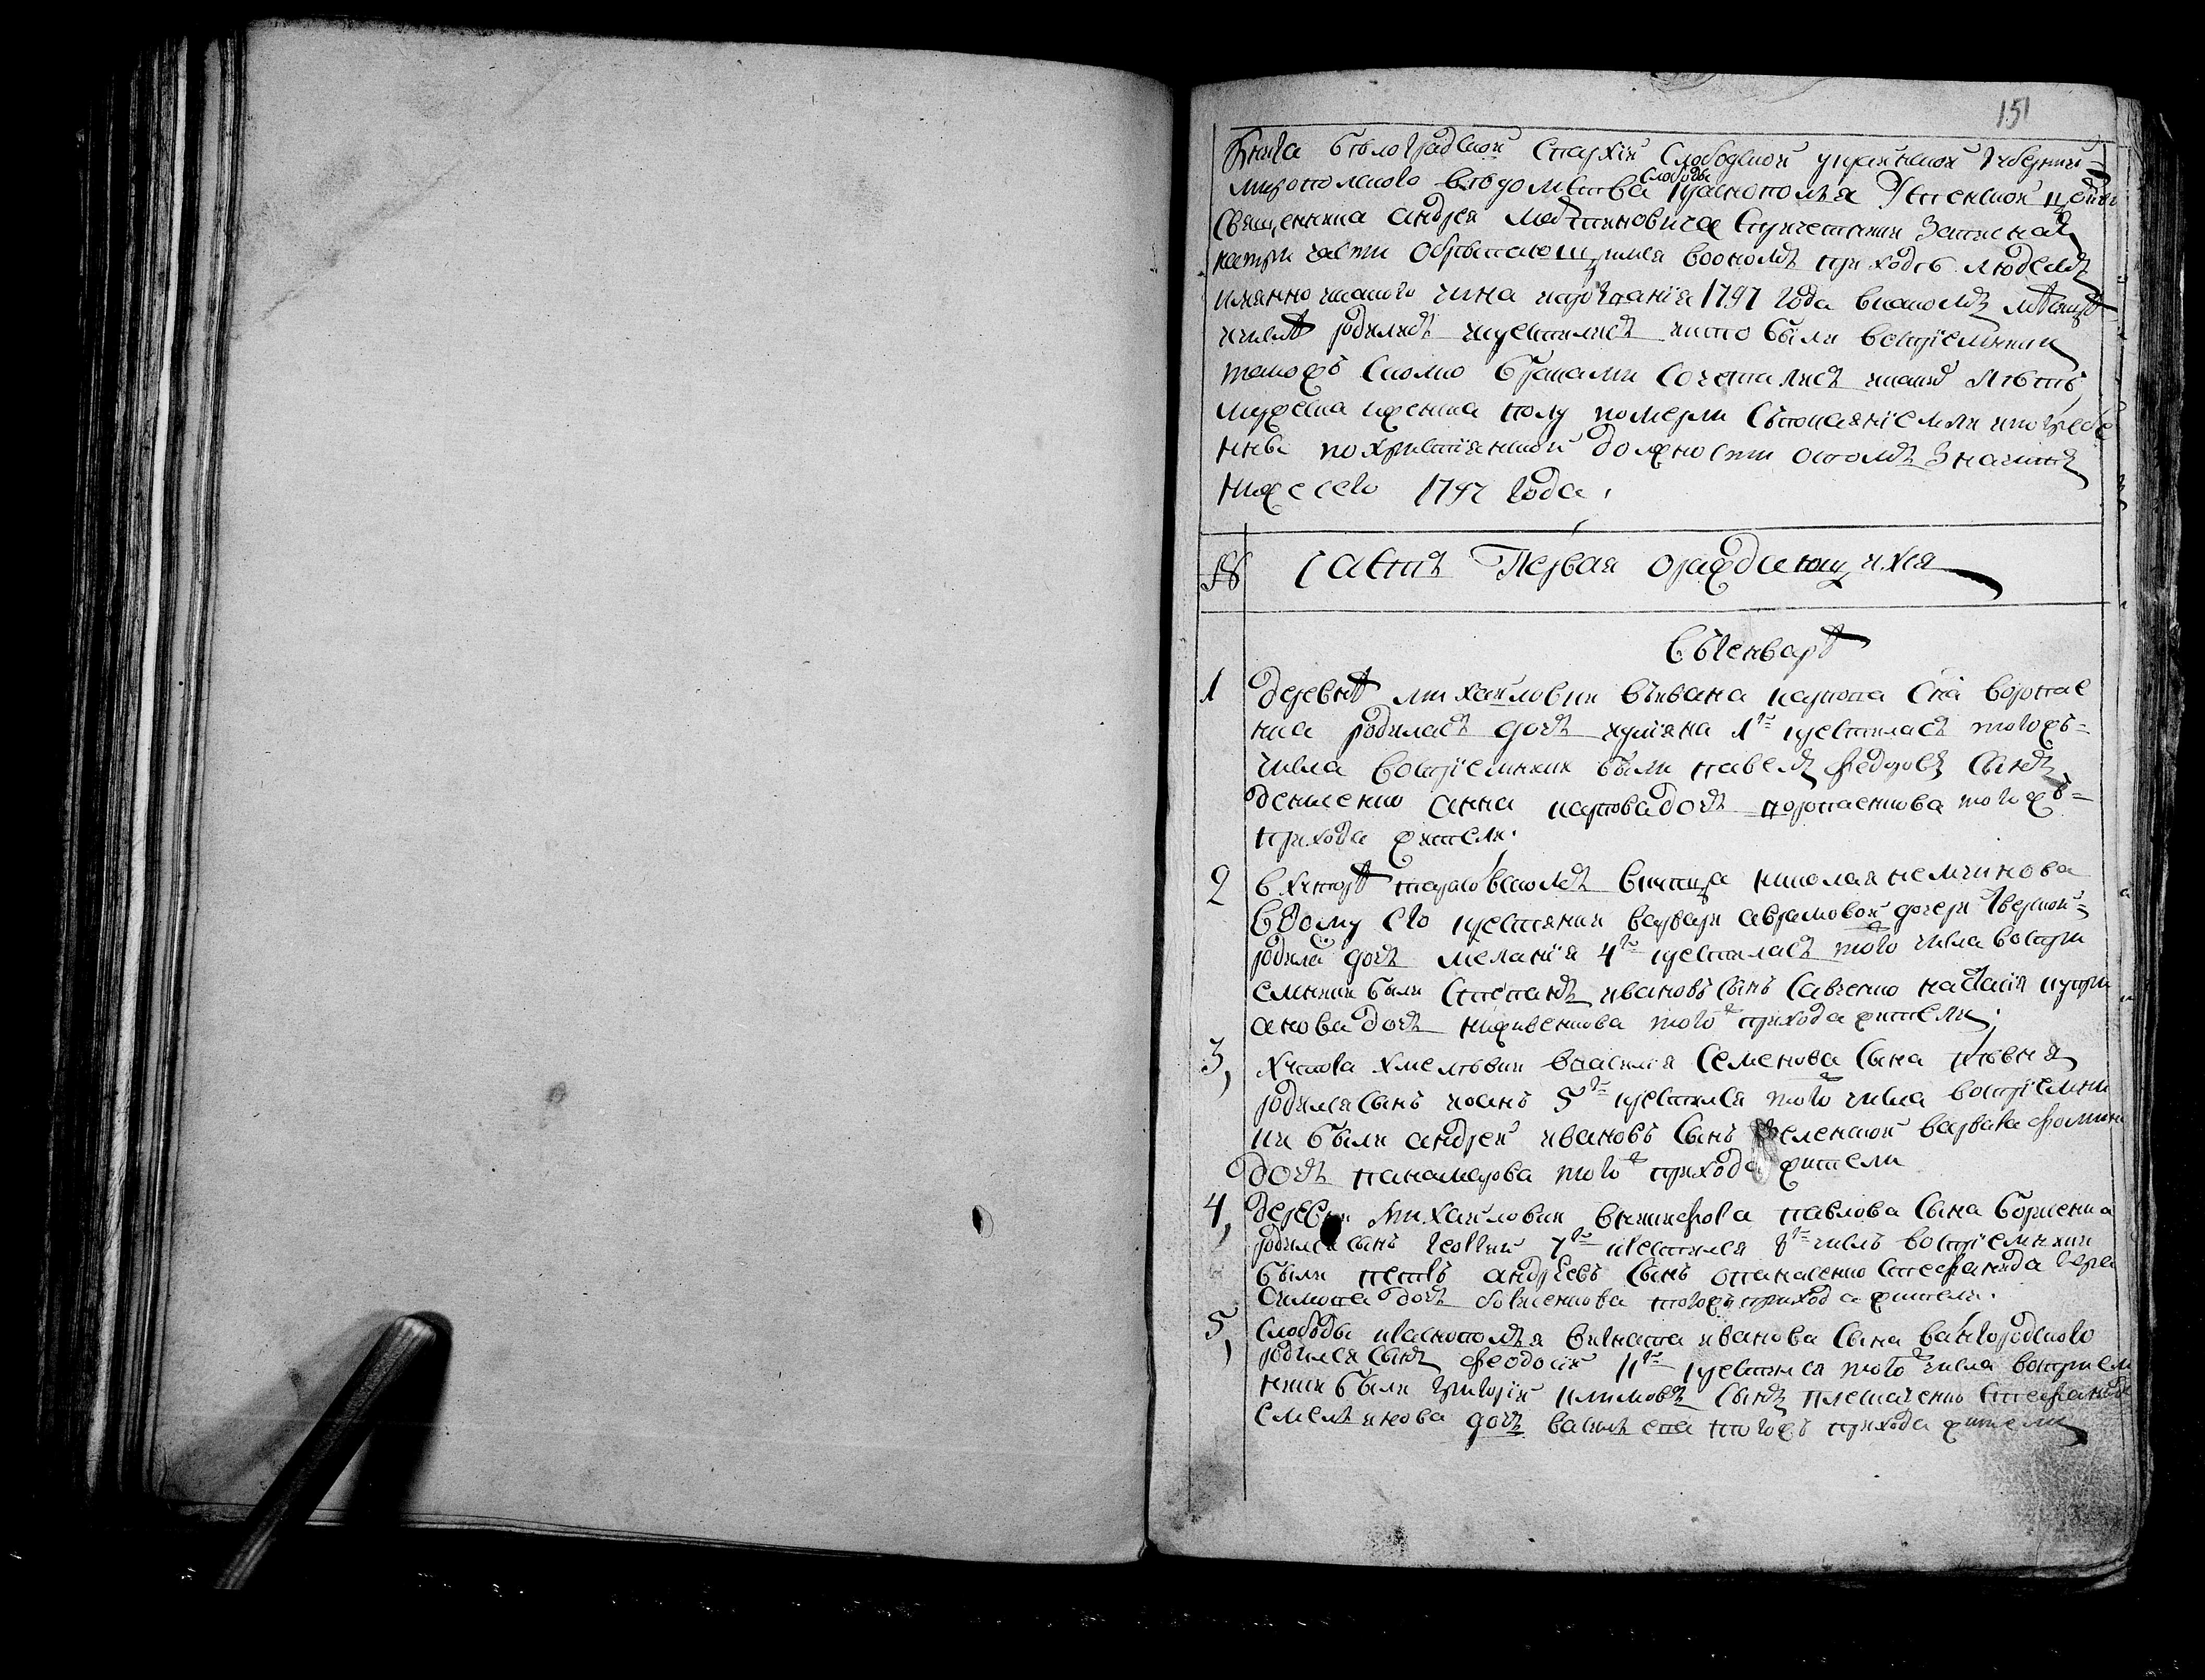 151
Книга белоградской епархіи слободской украинской губернии
миропольского ведомства слободы краснополья успенской церкви
священника андрея мартиновича спричетники записная
натри части обретающимся воономъ приходе людемъ
имянно какого чина издания 1797 года вкакомъ месяце
ичисле родились икрестились икто были восприемники
такожъ сколко браками сочетались икакихъ летъ
мужеска иженска полу померли съпокаяніемли ипогребе
нны похристиянской должности отомъ значитъ
нижесего 1797 года
№ Часть Первая ораждающихся
Въгенваре
1 деревне михайловки въивана карпова сна воропае
нка родилась дочь иулияна 1го крестилась тогожъ
числа восприемники были павелъ федоровъ сынъ
денисенко анна карпова дочь воропаенкова тогожъ
прихода жители
2 вхуторе вписца николая немчинова
вдому его крестянки варвари аврамовой дочери
родила дочь меланія 4го крестилась тогож числа воспри
емники были степанъ ивановъ сынъ савченко настасія купри
анова дочь нижвенкова тогож прихода жители
3, хутора хмелювки василия семенова сына певня
родился сынъ иоанъ 5го крестился тогож числа восприемни
ки были андрей ивановъ сынъ зеленской варвара фомина
дочь панамарова тогож прихода жители
4, деревни михайловки вникифора павлова сына борисенка
родился сынъ георгий 7го крестился 8го числъ восприемники
были петръ андреевъ сынъ опанасенко стефанида
дочь борисенкова тогожъ прихода жители
5, слободы краснополья вигната иванова сына
родился сынъ феодосій 11го крестился тогож числа восприем
ники были григорій климовъ сынъ плешаченко стефанида
емельянова дочь тогожъ прихода жители